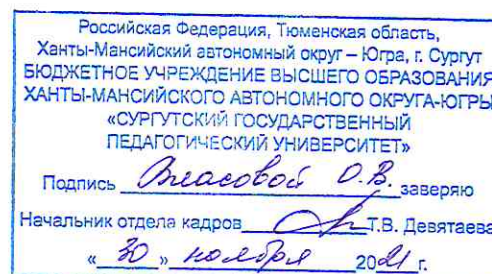 Российская Федерация, Тюменская область,
Ханты-Мансийский автономный округ – Югра, г. Сургут
БЮДЖЕТНОЕ УЧРЕЖДЕНИЕ ВЫСШЕГО ОБРАЗОВАНИЯ
ХАНТЫ-МАНСИЙСКОГО АВТОНОМНОГО ОКРУГА-ЮГРЫ
«СУРГУТСКИЙ ГОСУДАРСТВЕННЫЙ
ПЕДАГОГИЧЕСКИЙ УНИВЕРСИТЕТ»
Подпись Власовой О.В. заверяю
Начальник отдела кадров Т.В. Девятаева
« 30 » ноября 2021 г.